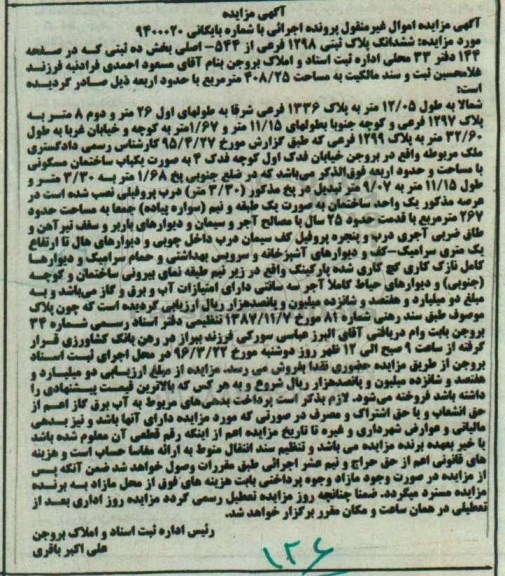 آگهی مزایده
آگهی مزایده اموال غیرمنقول پرونده اجرائی با شماره بایگانی ۹۴۰۰۰۲۰
مورد مزایده: ششدانگ پلاک ثبتی ۱۲۹۸ فرعی از ۵۴۴- اصلی بخش ده ثبتی که در صفحه
۱۴۴ دفتر ۳۳ محلی اداره ثبت اسناد و املاک بروجن بنام آقای مسعود احمدی فرادنبه فرزند
غلامحسین ثبت و سند مالکیت به مساحت ۴۰۸/۲۵ مترمربع با حدود اربعه ذیل صادر گردیده
است:
شمالا به طول ۱۲/۰۵ متر به پلاک ۱۳۳۶ فرعی شرقا به طولهای اول ۲۶ متر و دوم ۸ متر به
پلاک ۱۲۹۷ فرعی و کوچه جنوبا بطولهای ۱۱/۱۵ متر و ۱/۶۷متر به کوچه و خیابان غربا به طول
۳۲/۶۰ متر به پلاک ۱۲۹۹ فرعی که طبق گزارش مورخ ۹۵/۴/۲۷ کارشناس رسمی دادگستری
ملک مربوطه واقع در بروجن خیابان فدک اول کوچه فدک ۴ به صورت یکباب ساختمان مسکونی
با مساحت و حدود اربعه فوق‌الذکر می‌باشد که در ضلع جنوبی پخ ۱/۶۸ متر به ۳/۳۰ متر و
طول ۱۱/۱۵ متر به ۹/۰۷ متر تبدیل در پخ مذکور (۳/۳۰ متر) درب پروفیلی نصب شده است در
عرصه مذکور یک واحد ساختمان به صورت یک طبقه و نیم (سواره پیاده) جمعا به مساحت حدود
۲۶۷ مترمربع با قدمت حدود ۲۵ سال با مصالح آجر و سیمان و دیوارهای باربر و سقف تیرآهن و
طاق ضربی آجری درب و پنجره پروفیل کف سیمان درب داخل چوبی و دیوارهای هال تا ارتفاع
یک متری سرامیک-کف و دیوارهای آشپزخانه و سرویس بهداشتی و حمام سرامیک و دیوارها
کامل نازک کاری گچ کاری شده پارکینگ واقع در زیر نیم طبقه نمای بیرونی ساختمان و کوچه
(جنوبی) و دیوارهای حیاط کاملا آجر سه سانتی دارای امتیازات آب و برق و گاز می‌باشد و به
مبلغ دو میلیارد و هفتصد و شانزده میلیون و پانصدهزار ریال ارزیابی گردیده است که چون پلاک
موصوف طبق سند رهنی شماره ۸۱ مورخ ۱۳۸۷/۱۱/۷ تنظیمی دفتر اسناد رسمی شماره ۳۳
بروجن بابت وام دریافتی آقای البرز عباسی سورکی فرزند بیراز در رهن بانک کشاورزی قرار
گرفته از ساعت ۹ صبح الی ۱۲ ظهر روز دوشنبه مورخ ۹۶/۳/۲۲ در محل اجرای ثبت اسناد
بروجن از طریق مزایده حضوری نقدا بفروش می رسد. مزایده از مبلغ ارزیابی دو میلیارد و
هفتصد و شانزده میلیون و پانصدهزار ریال شروع و به هر کس که بالاترین قیمت پیشنهادی را
داشته باشد فروخته می‌شود. لازم بذکر است پرداخت بدهی‌های مربوط به آب برق گاز اعم از
حق انشعاب و یا حق اشتراک و مصرف در صورتی که مورد مزایده دارای آنها باشد و نیز بدهی
مالیاتی و عوارض شهرداری و غیره تا تاریخ مزایده اعم از اینکه رقم قطعی آن معلوم شده باشد
یا خیر بعهده برنده مزایده می باشد و تنظیم سند انتقال منوط به ارائه مفاسا حساب است و هزینه
های قانونی اعم از حق حراج و نیم عشر اجرائی طبق مقررات وصول خواهد شد ضمن آنکه پس
از مزایده در صورت وجود مازاد وجوه پرداختی بابت هزینه های فوق از محل مازاد به برنده
مزایده مسترد میگردد. ضمنا چنانچه روز مزایده تعطیل رسمی گردد مزایده روز اداری بعد از
تعطیلی در همان ساعت و مکان مقرر برگزار خواهد شد.
رئیس اداره ثبت اسناد و املاک بروجن
علی اکبر باقری
۱۲۶